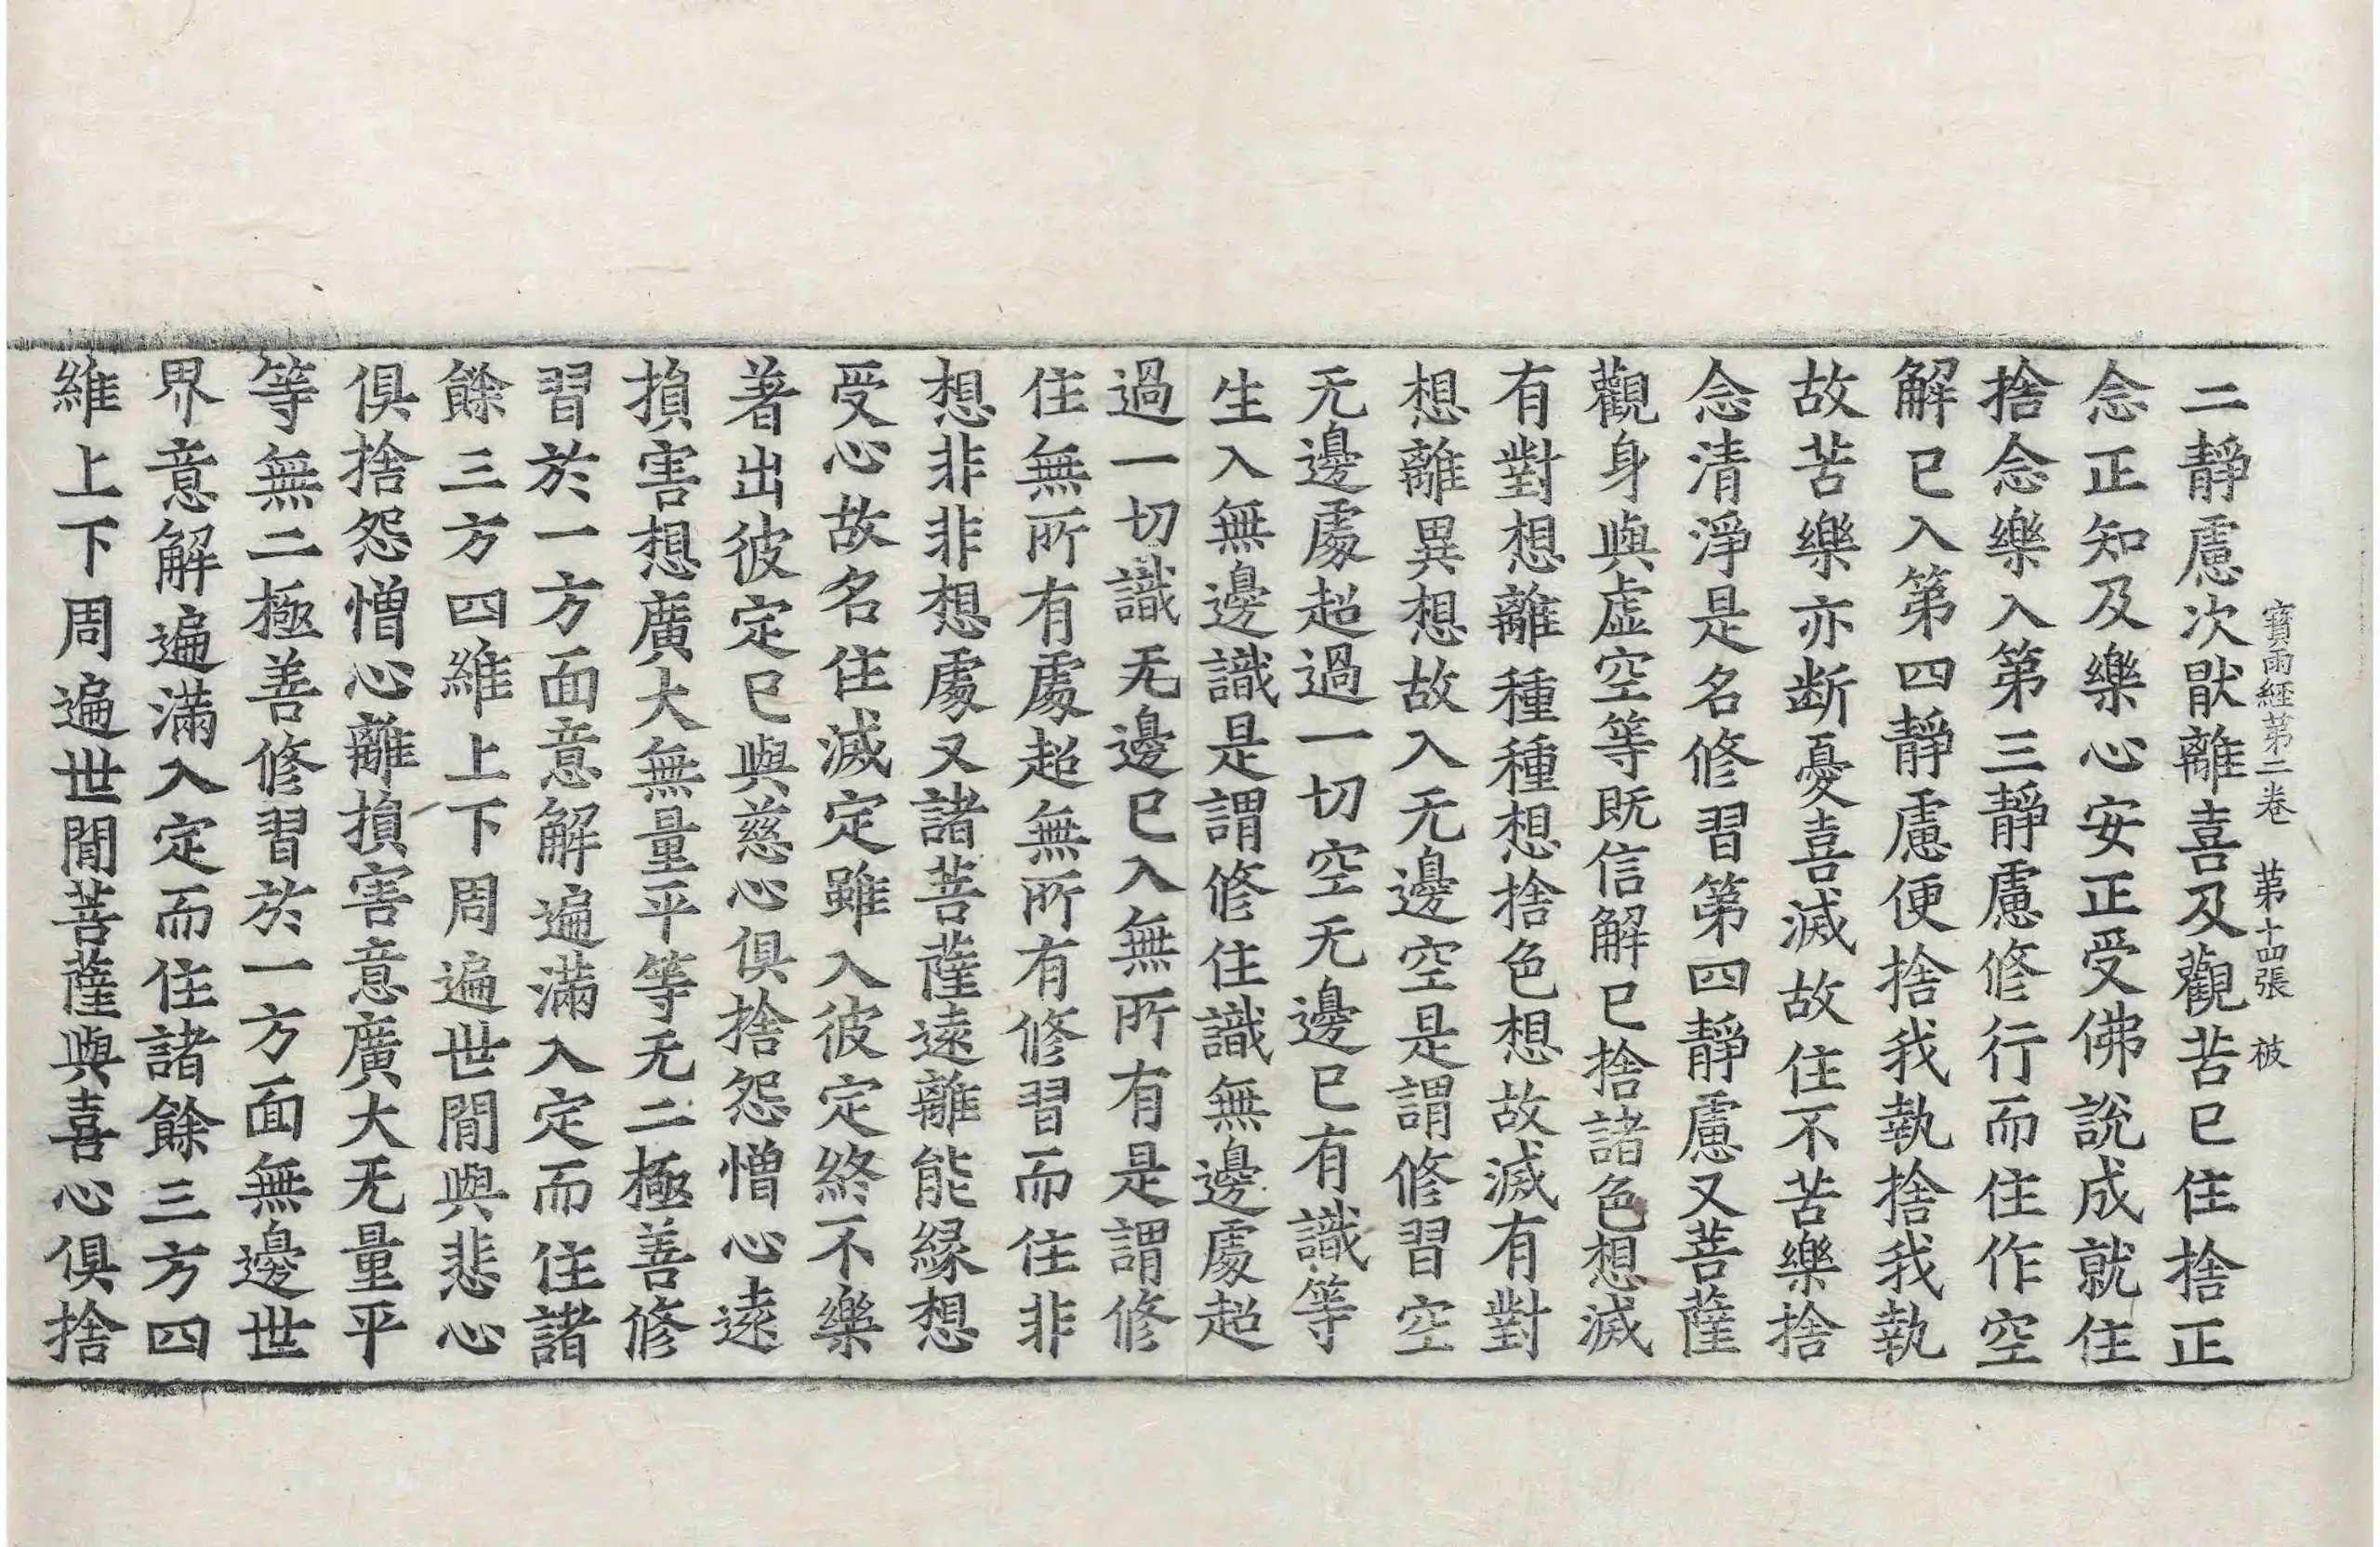 寶雨經第二卷　第十四張　被
二靜慮次猒離喜及觀苦已住捨正
念正知及樂心安正受佛說成就住
捨念樂入第三靜慮修行而住作空
解已入第四靜慮便捨我執捨我執
故苦樂亦断憂喜滅故住不苦樂捨
念清淨是名修習第四靜慮又菩薩
觀身與虛空等既信解已捨諸色想滅
有對想離種種想捨色想故滅有對
想離異想故入无邊空是謂修習空
无邊處超過一切空无邊已有識等
生入無邊識是謂修住識無邊處超
過一切識无邊已入無所有是謂修
住無所有處超無所有修習而住非
想非非想處又諸菩薩遠離能緣想
受心故名住滅定雖入彼定終不樂
著出彼定已與慈心俱捨怨憎心遠
損害想廣大無量平等无二極善修
習於一方面意解遍滿入定而住諸
餘三方四維上下周遍世間與悲心
俱捨怨憎心離損害意廣大无量平
等無二極善修習於一方面無邊世
界意解遍滿入定而住諸餘三方四
維上下周遍世間菩薩與喜心俱捨